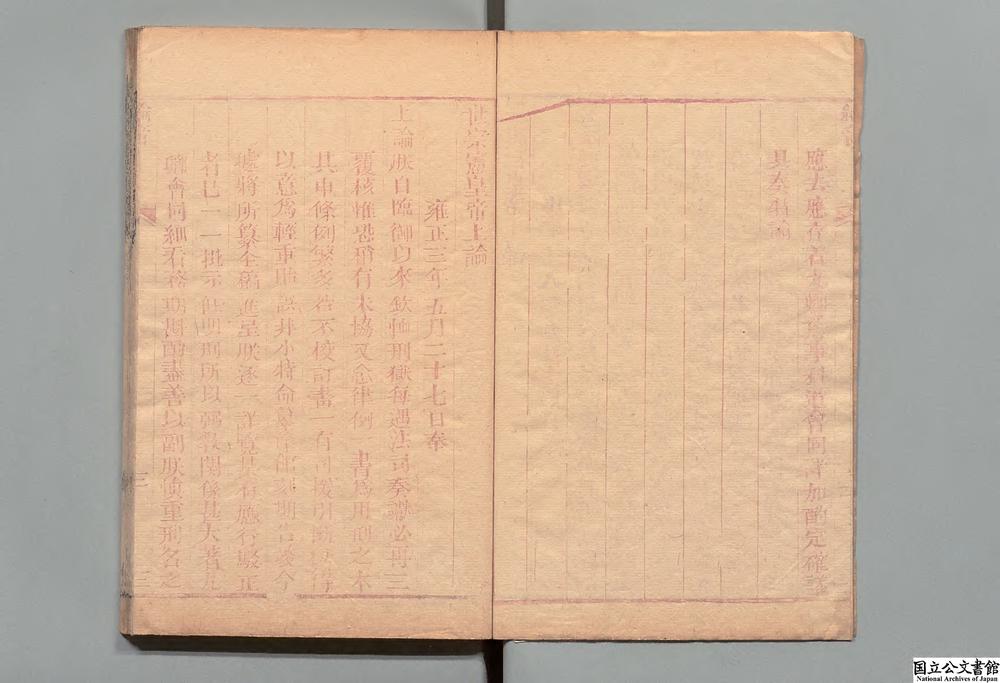 應去應存者著九卿 會同詳加酌定確議
具奏特諭
世宗憲皇帝上諭
雍正三年五月二十七日奉
上諭朕自臨御以來欽恤刑獄每遇法司奏讞必再三
覆核惟恐稍有未協又念律例一書為用刑之本
其中條例繁多若不校訂畫一有司援引斷獄得
以意為輕重 誤非小特命 刻期告竣今
據將所纂全稿進呈朕逐一詳覽其有應行駁正
者已一一批示但明刑所以弼教關係甚大著九
卿會同細看務期周詳盡善以副朕慎重刑名之
三
国立公文書館
National Archives of Japan